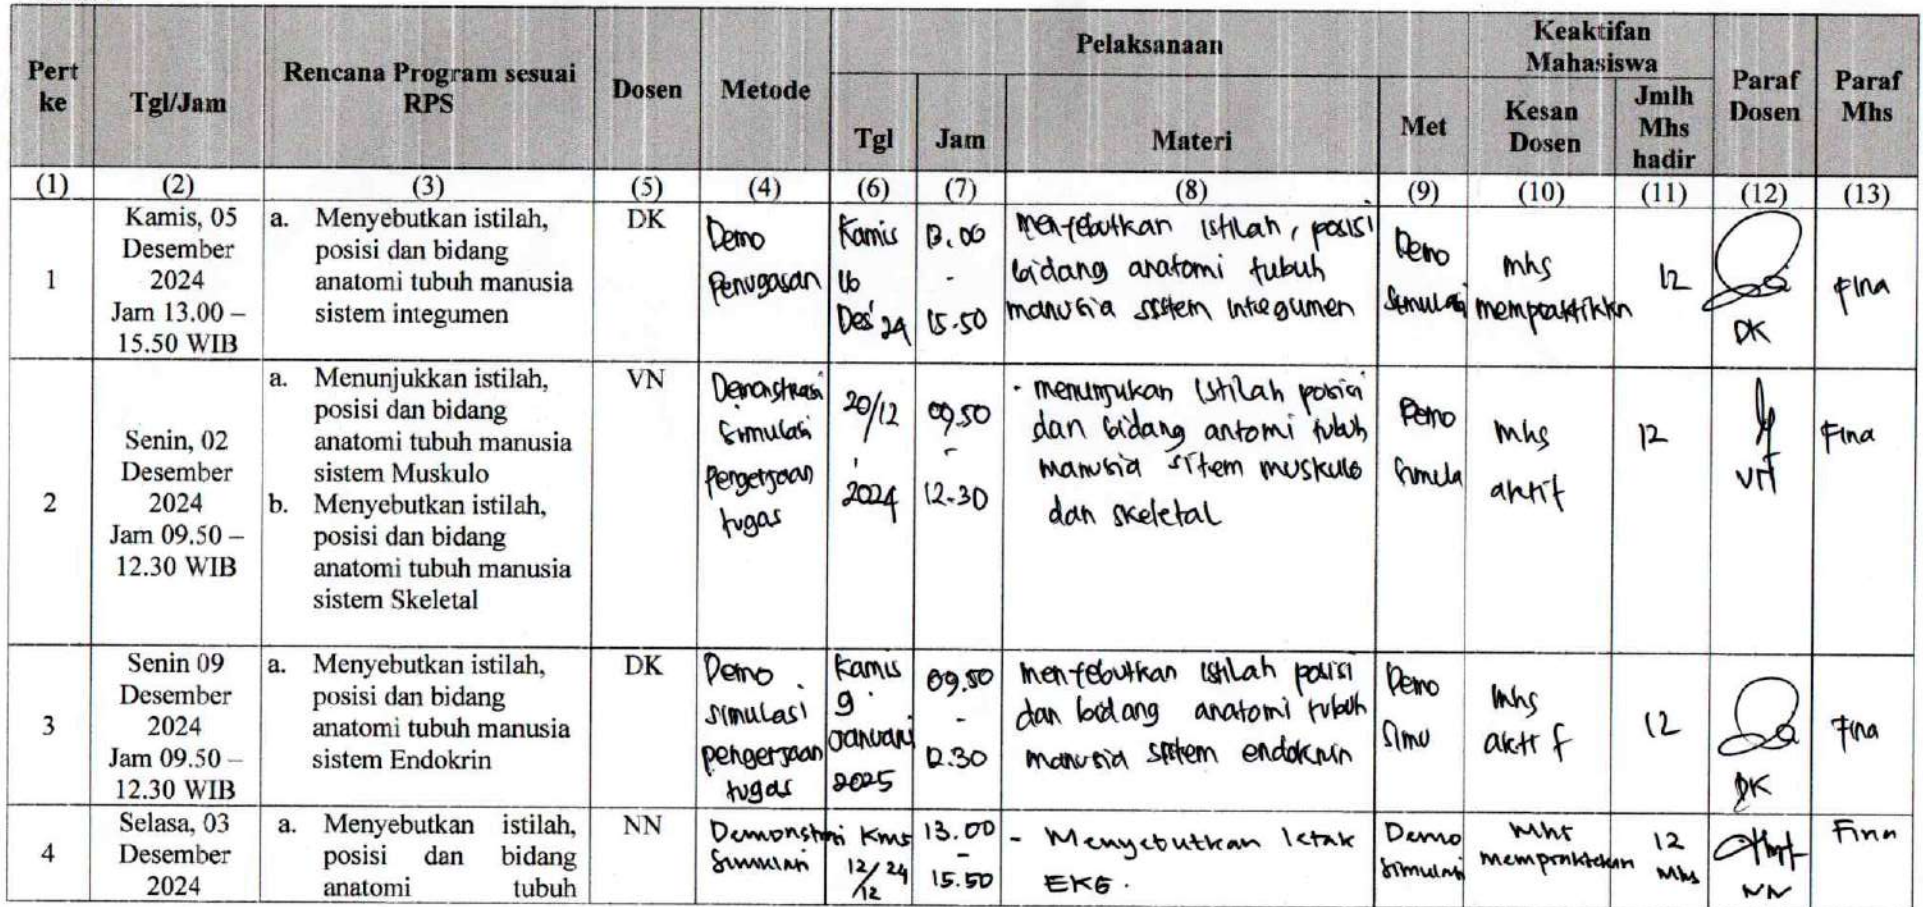 Pert ke
Tgl/Jam
Rencana Program sesuai RPS
Dosen
Metode
Pelaksanaan
Tgl
Jam
Materi
Met
Keaktifan Mahasiswa
Kesan Dosen
Jmlh Mhs hadir
Paraf Dosen
Paraf Mhs
(1) (2) (3) (5) (4) (6) (7) (8) (9) (10) (11) (12) (13)
1
Kamis, 05
Desember
2024
Jam 13.00 –
15.50 WIB
a. Menyebutkan istilah,
posisi dan bidang
anatomi tubuh manusia
sistem integumen
DK
Demo
Penugasan
Kamis
Des 24
13.00
-
15.50
menyebutkan istilah, posisi
bidang anatomi tubuh
manusia sistem integumen
Demo
Simulasi
mhs
mempraktikkn
12
DK
Fina
2
Senin, 02
Desember
2024
Jam 09.50 –
12.30 WIB
a. Menunjukkan istilah,
posisi dan bidang
anatomi tubuh manusia
sistem Muskulo
b. Menyebutkan istilah,
posisi dan bidang
anatomi tubuh manusia
sistem Skeletal
VN
Demonstrasi
simulasi
pengerjaan
tugas
20/12
2024
09.50
-
12.30
- menunjukan istilah posisi
dan bidang antomi tubuh
manusia sitem muskulo
dan skeletal
Demo
Simula
mhs
aktif
12
Fina
3
Senin 09
Desember
2024
Jam 09.50 –
12.30 WIB
a. Menyebutkan istilah,
posisi dan bidang
anatomi tubuh manusia
sistem Endokrin
DK
Demo
simulasi
pengerjaan
tugas
Kamis
9
Januari
2025
09.50
-
12.30
menyebutkan istilah posisi
dan bidang anatomi tubuh
manusia sistem endokrin
Demo
Simu
mhs
aktif
12
DK
Fina
4
Selasa, 03
Desember
2024
a. Menyebutkan istilah,
posisi dan bidang
anatomi tubuh
NN
Simulasi
Kms
12/24
12
13.00
-
15.50
- Menyebutkan letak
EKG.
Demo
Simulasi
Mhs
mempraktekan
12
Mhs
NN
Fina